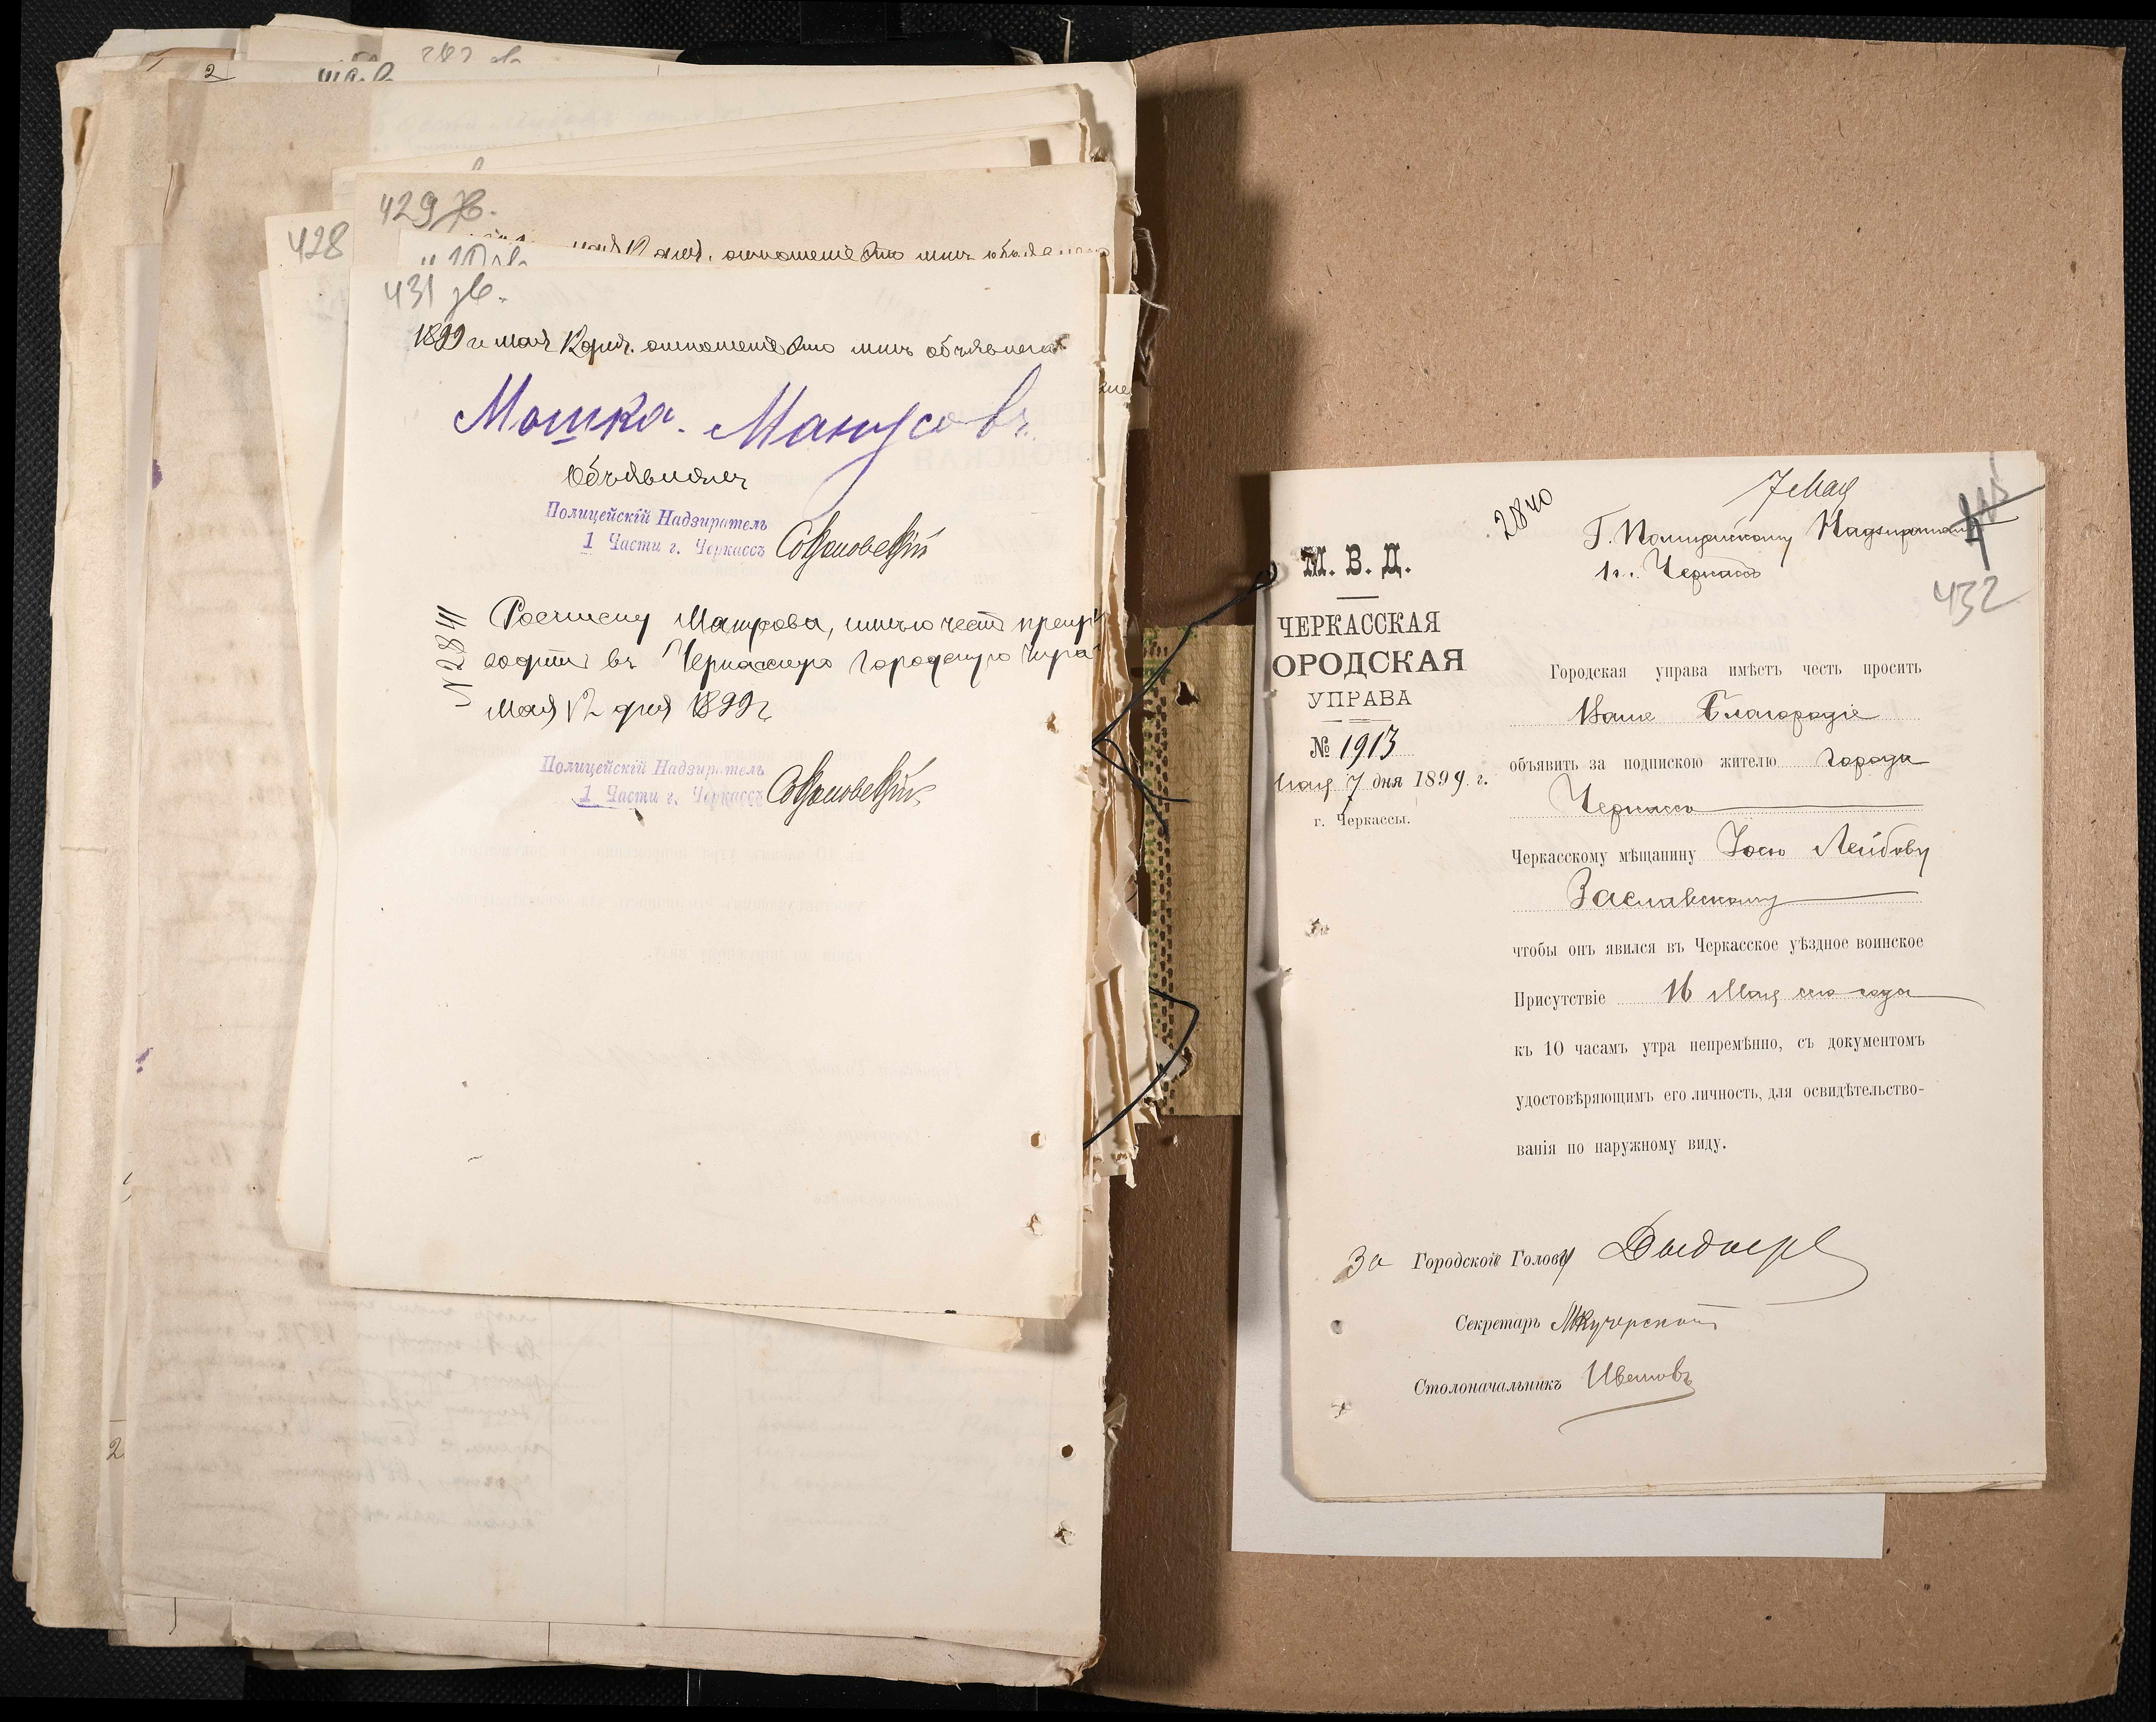 2
428
429 зв.
431 зв.
1899 г. мая 12 дня. отношение это мнѣ объявлено
Мошка. Манусовъ
Объявилъ
Полицейскій Надзиратель
1 Части г. Черкассъ
№ 2841
Росписку Манусова, имѣю честь препро
водить въ Черкасскую Городскую Упра
Мая 12 дня 1899 г.
Полицейскій Надзиратель
1 Части г. Черкассъ
7 Мая
2840
Г. Полицейскому Надзирателю
1 ч. Черкассъ
432
М. В. Д.
ЧЕРКАССКАЯ
ОРОДСКАЯ
УПРАВА
№ 1913
Мая 7 дня 1899 г.
г. Черкассы.
Городская управа имѣетъ честь просить
Ваше Благородіе
объявить за подпискою жителю города
Черкассъ
Черкасскому мѣщанину Іосю Лейбову
Заславскому
чтобы онъ явился въ Черкасское уѣздное воинское
Присутствіе 16 Мая сего года
къ 10 часамъ утра непремѣнно, съ документомъ
удостовѣряющимъ его личность, для освидѣтельство-
ванія по наружному виду.
За Городской Голову
Секретарь МКучерской
Столоначальникъ